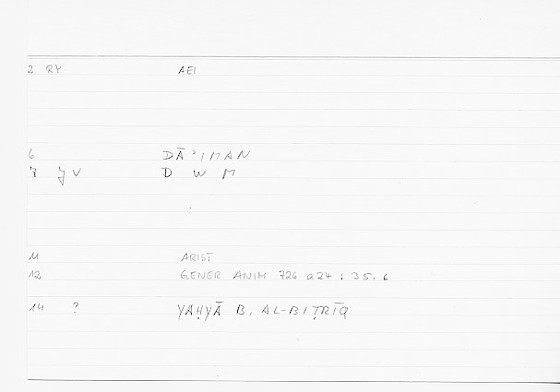 2 RY AEI
6 DĀʾIMAN
7 JV D W M
11 ARIST
12 GENER ANIM 726 a24 : 35.6
14 ? YAḤYĀ B. AL-BIṬRĪQ